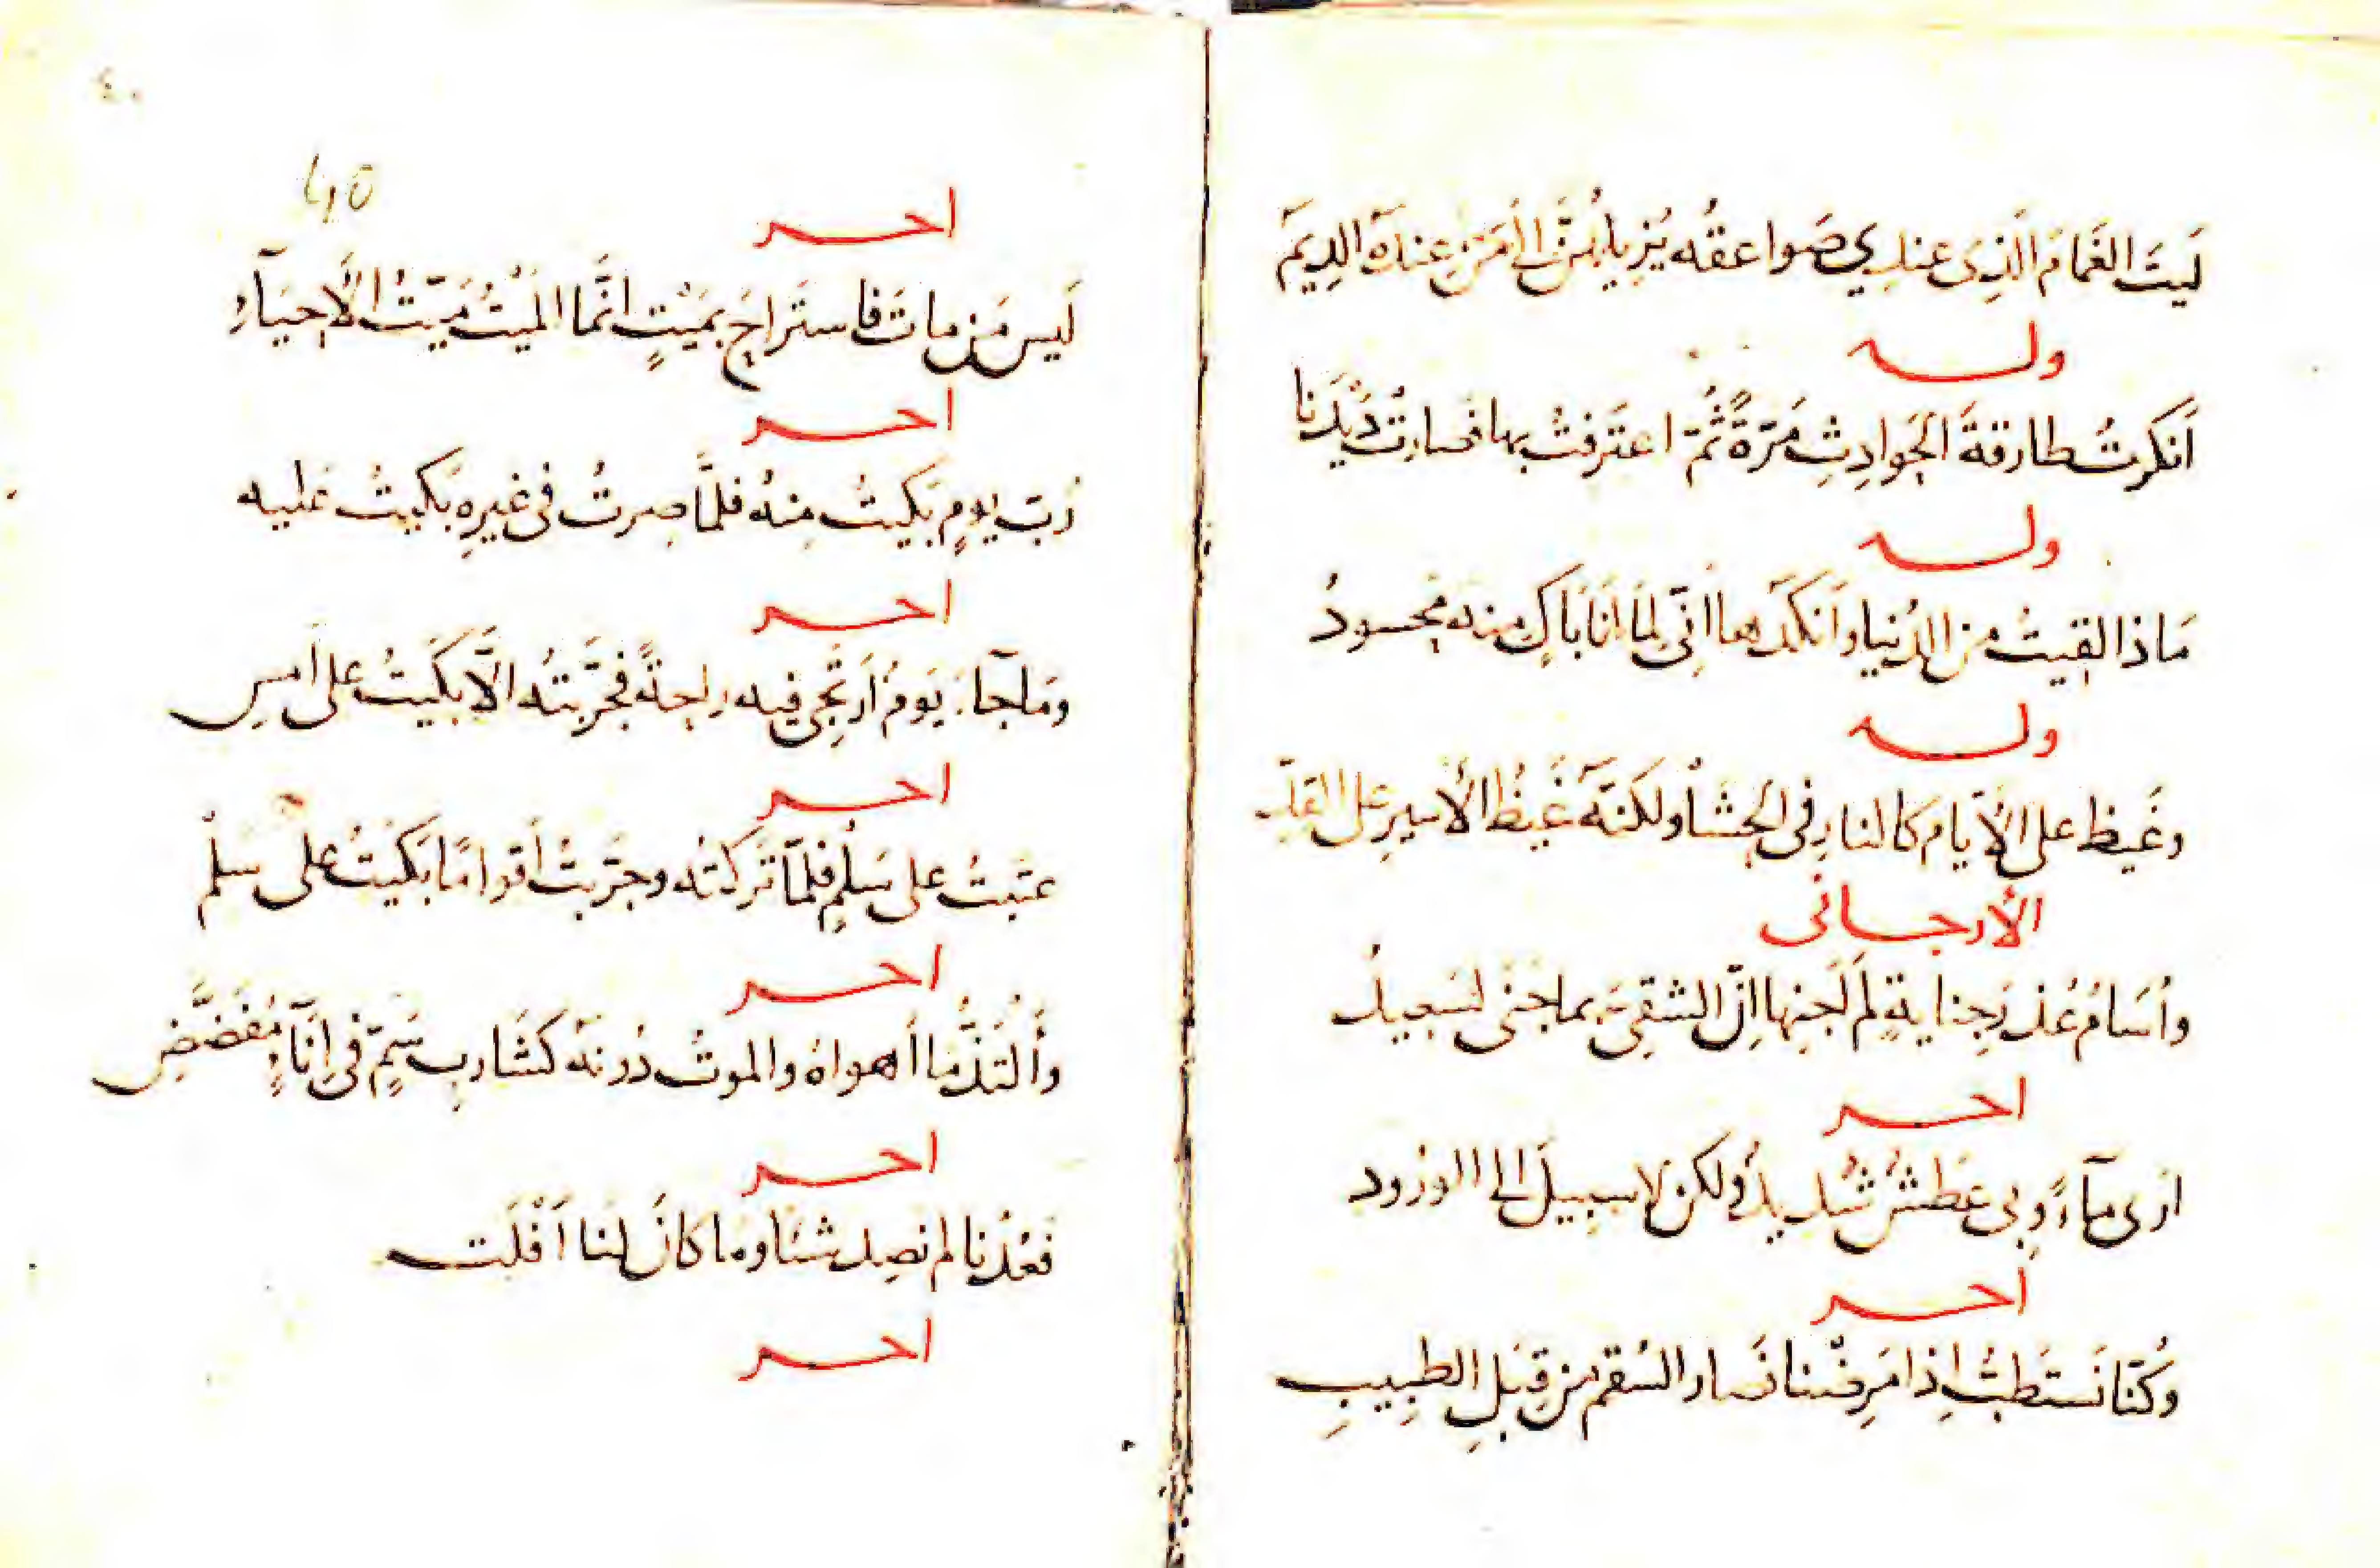 لَيتَ الغَمَامَ الَّذِى عندِي صَواعقُه يُزِيلُهُنَّ الى مَن عِندَهُ الدِيَم
وله
أَنكرتُ طارقةَ الحَوادِثِ مَرّةً ثُمّ اعتَرفتُ بها فصارت دَيْدَنا
وله
مَاذا لقيتُ من الدُنيا وأنكَدُها انِّى لِمَا أنا بَاكٍ منه مَحسودُ
وله
وغَيظ على الأيّام كالنارِ فى الحشا ولكنّه غَيظُ الأَسيرِ على القِدِّ
الأرجانى
وأُسَامُ عُذرَ جِنايةٍ لم أَجنِها إنّ الشقِىَّ بما جنى لسَعِيدُ
اخر
ارى مآءً وبى عَطَشٌ شَدِيدٌ ولكن لا سبِيلَ الى الورُود
اخر
وَكُنّا نَستَطِبُّ اِذا مَرِضنا فصار السُقم من قِبَلِ الطبِيبِ
٤٠
40
اخر
لَيس مَن ماتَ فاستَراحَ بمَيْتٍ انَّما المَيْتُ مَيّتُ الأَحيَآءِ
اخر
رُبّ يومٍ بَكيتُ منهُ فلمّا صِرتُ فى غيرِهِ بَكيتُ عَليه
اخر
ومَا جآءَ يَومٌ أَرتَجِى فيه راحةً فجَرّبتُه الّا بَكَيتُ على أَمسِ
اخر
عتَبتُ على سَلْمٍ فلمّا تَركتُه وجَرّبتُ أقوامًا بَكَيتُ على سَلْمِ
اخر
وأَلتَذُّ ما أهواهُ والموتُ دُونَهُ كَشَاربِ سَمٍّ فى إِنَآءٍ مُفَضَّضِ
اخر
فعُدْنا لم نَصِد شيئًا وما كانَ لنا أَفْلَت
اخر